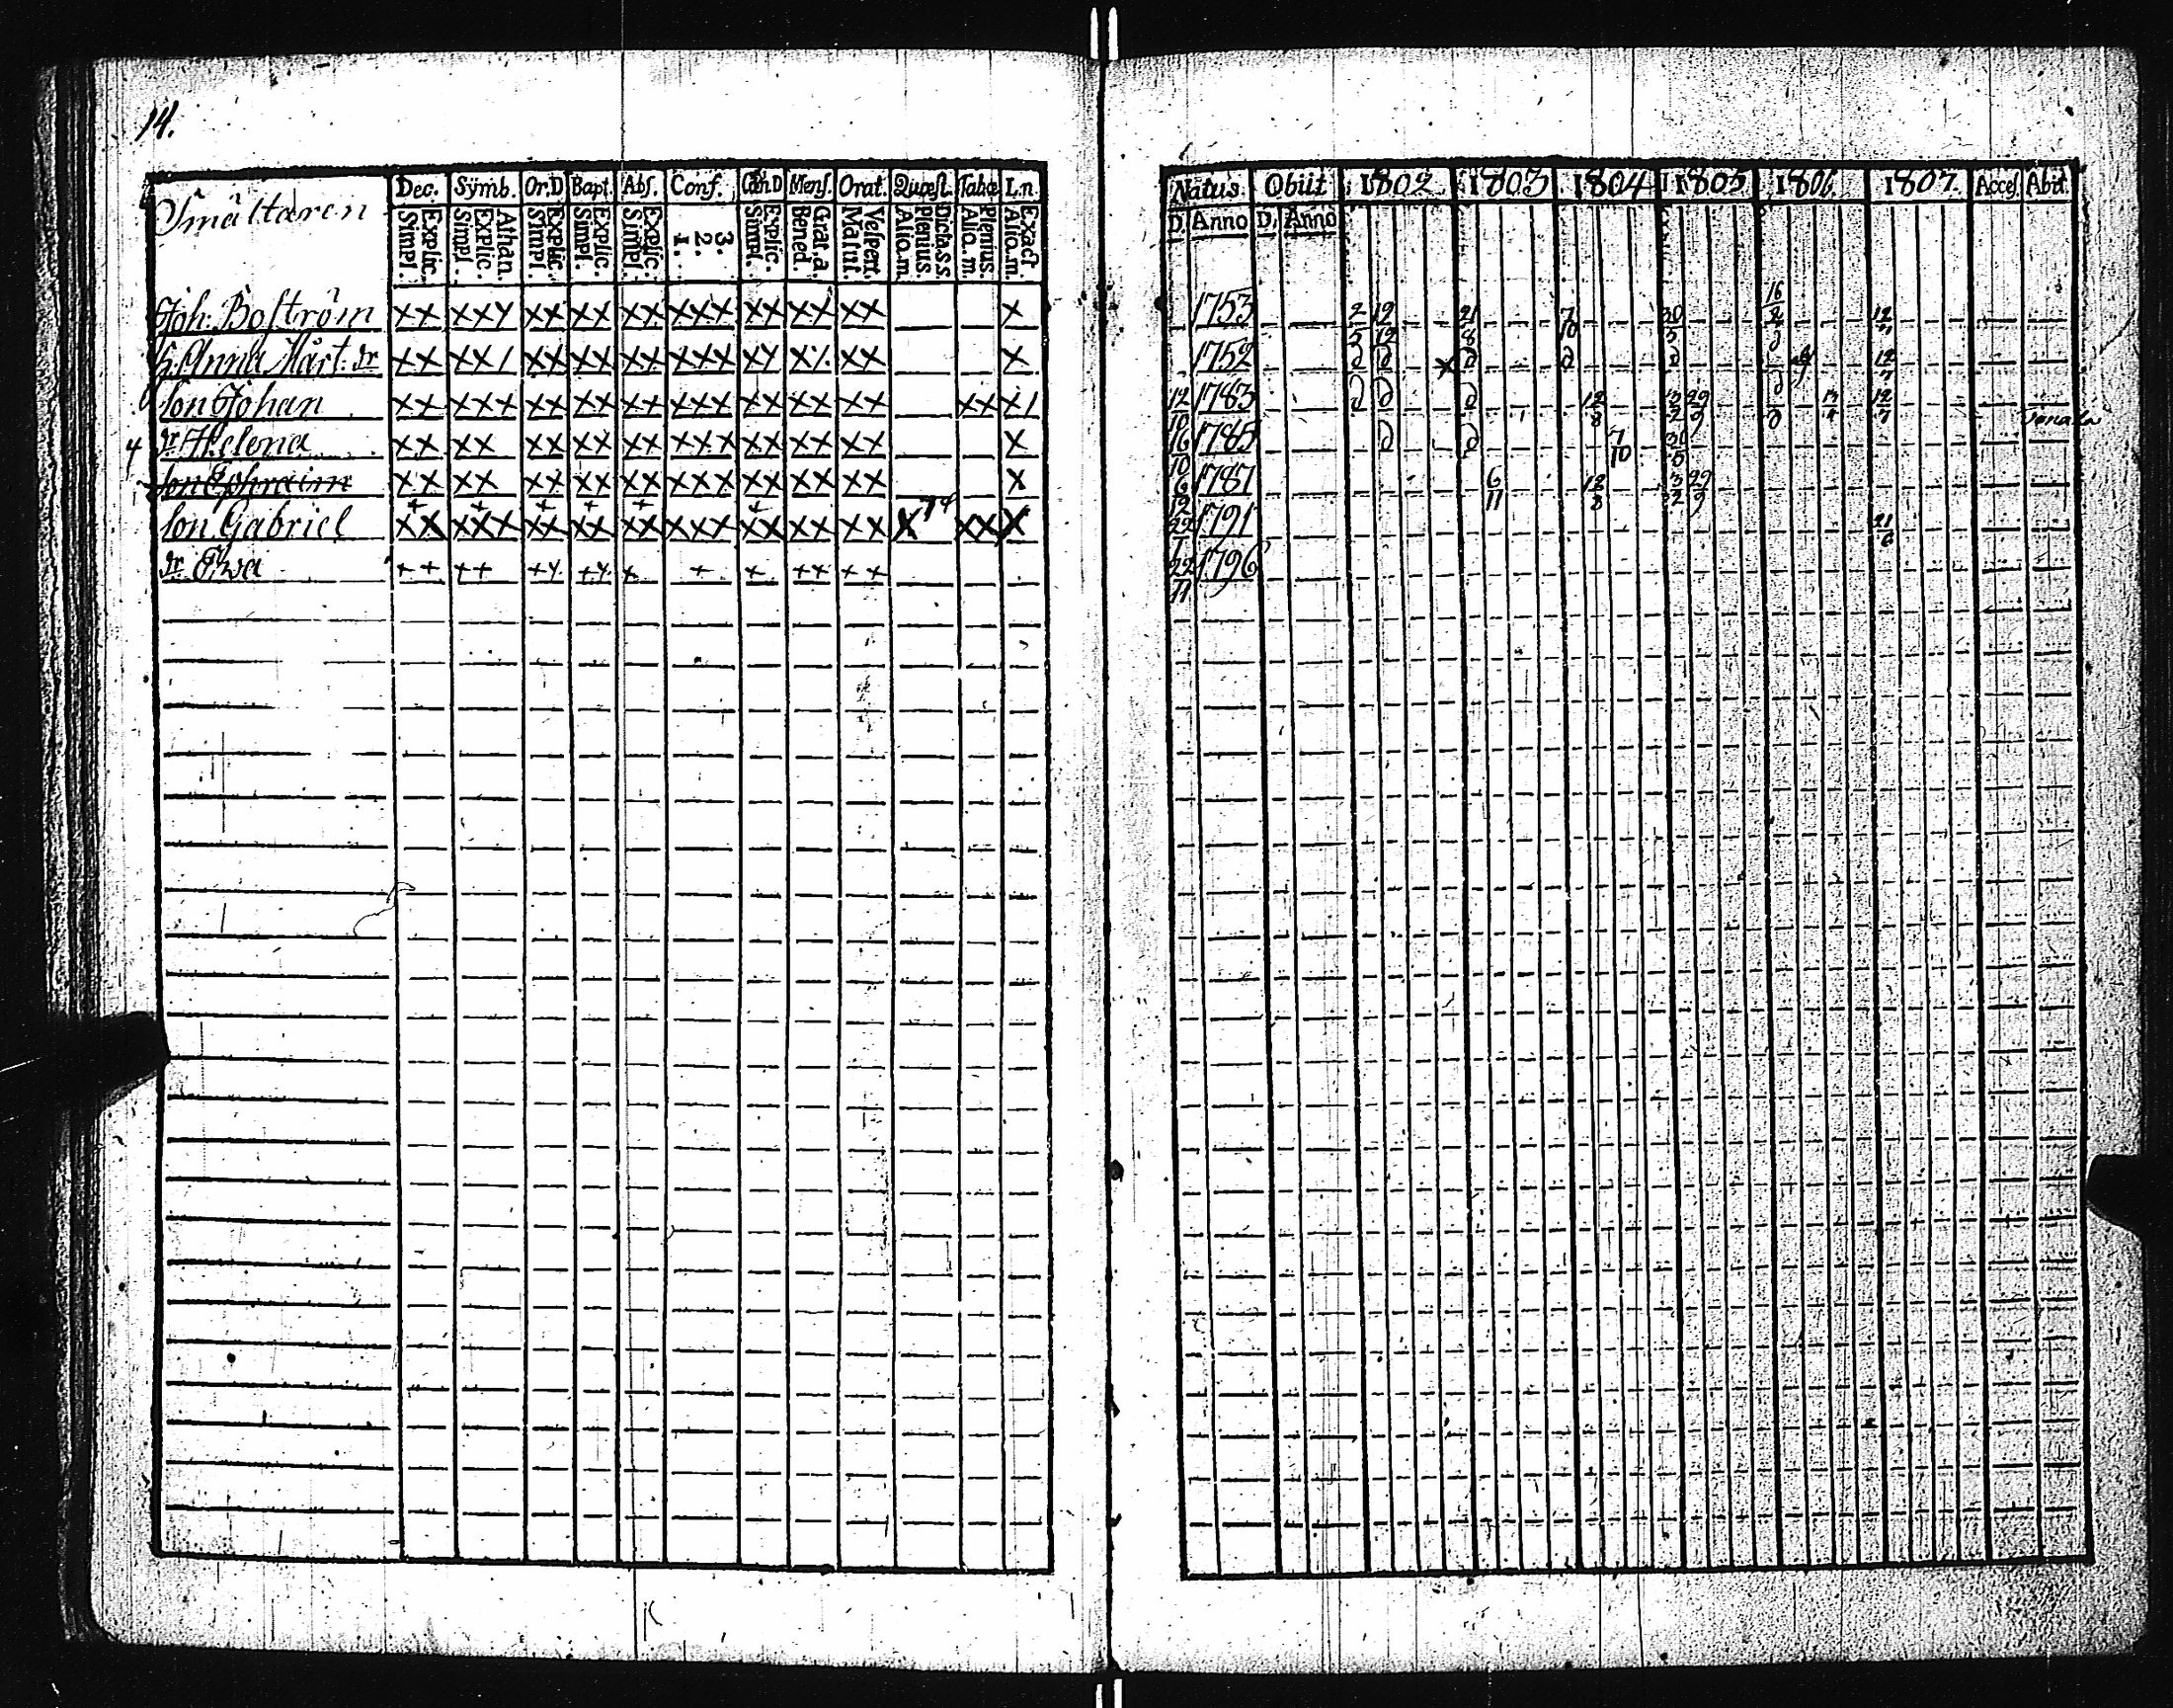 14.
Smältaren
Dec. Symb. Or.D Bapt. Abſ. Conf. CœnD Menſ. Orat. Quœſt. Tabœ I.n.
Explic. Simpl. Athan. Explic. Simpl. Explic. Simpl. Explic. Simpl. Explic. Simpl. 3. 2. 1. Explic. Simpl. Grat.a. Bened. Veſpert. Matut. Dicta.s.s. Plenius. Alio.m. Plenius. Alio.m. Exact Alio.m.
Joh. Boſtröm xx xxx xx xx xx xxx xx xx xx x
h. Anna Mårt. dr xx xx1 xx xx xx xxx xx x xx x
Son Johan xx xxx xx xx xx xxx xx xx xx xx x1
4 dr Helena xx xx xx xx xx xxx xx xx xx x
Son Ephraim xx xx xx xx xx xxx xx xx xx x
Son Gabriel xx xxx xx xx xx xxx xx xx xx x xx x
dr Ewa ++ ++ ++ ++ + + + ++ ++
Natus. Obiit 1802 1803 1804 1805 1806 1807. Acceſ. Abit.
D. Anno D. Anno
1753 2/5 19/12 21/8 7/10 30/5 16/2 12/7
1752 d d x d d d d 12/7
12/10 1783 d d d 12/8 3/2 29/9 d 12/7
16/10 1785 d d 7/10 30/5
6/12 1787 6/11 12/8 3/2 29/9
22/1 1791 21/6
22/11 1796